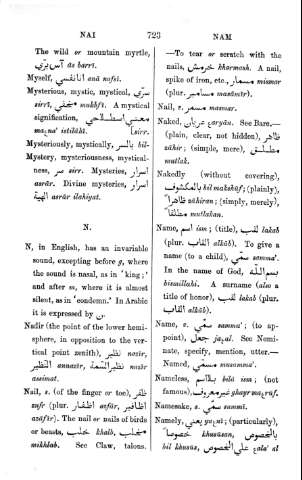 NAI 723 NAM
The wild or mountain myrtle,
آس برّي ās barrī.
Myself, انا نفسي anā nafsī.
Mysterious, mystic, mystical, سرّي
sirrī, مخفي mukhfī. A mystical
signification, معني اصطلاحي
ma,na' istilāḥī. [sirr.
Mysteriously, mystically, بالسر bil-
Mystery, mysteriousness, mystical-
ness, سر sirr. Mysteries, اسرار
asrār. Divine mysteries, اسرار
الهية asrār ilahīyat.
N.
N, in English, has an invariable
sound, excepting before g, where
the sound is nasal, as in 'king;'
and after m, where it is almost
silent, as in 'condemn.' In Arabic
it is expressed by ن.
Nadir (the point of the lower hemi-
sphere, in opposition to the ver-
tical point zenith), نظير nazīr,
النظير annazīr, نظير السمت nazīr
assimat.
Nail, s. (of the finger or toe), ظفر
zufr (plur. اظفار azfār, اظافير
azāfīr). The nail or nails of birds
or beasts, خلب khalb, مخلب
mikhlab. See Claw, talons.
—To tear or scratch with the
nails, خرمش kharmash. A nail,
spike of iron, etc., مسمار mismar
(plur. مسامير masāmīr).
Nail, v. سمر sammar.
Naked, عريان ,aryān. See Bare.—
(plain, clear, not hidden), ظاهر
zāhir; (simple, mere), مطلق
mutlak.
Nakedly (without covering),
بالمكشوف bil makshūf; (plainly),
ظاهرا zāhiran; (simply, merely),
مطلقا mutlakan.
Name, اسم ism; (title), لقب lakab
(plur. القاب alkāb). To give a
name (to a child), سمّي samma'.
In the name of God, بسم الله
bismillahi. A surname (also a
title of honor), لقب lakab (plur.
القاب alkāb).
Name, v. سمّي samma'; (to ap-
point), جعل ja,al. See Nomi-
nate, specify, mention, utter.—
Named, مسمّي musamma'.
Nameless, بلا اسم bilā ism; (not
famous), غير معروف ghayr ma,rūf.
Namesake, s. سمّي sammī.
Namely, يعني ya,nī; (particularly),
خصوصا khusūsan, بالخصوص
bil khusūs, علي الخصوص ,ala' al